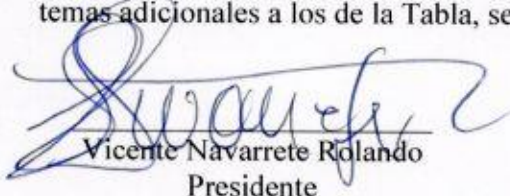 temas adicionales a los de la Tabla, se
Vicente Navarrete Rolando
Presidente